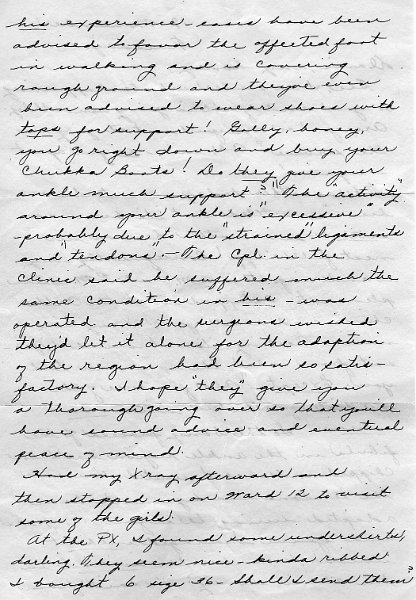 his experience - cases have been
advised to favor the affected foot
in walking and is covering
rough ground and they've even
been advised to wear shoes with
tops for support! Golly, honey,
you go right down and buy your
Chukka Boots! Do they give your
ankle much support? "The "activity"
around your ankle is "excessive"
- probably due to the "strained ligaments
and "tendons". - The Cpl. in the
clinic said he suffered much the
same condition in his - was
operated and the surgeons wished
they'd let it alone for the adaption
of the region had been so satis-
factory. I hope "they" give you
a thorough going over so that you'll
have sound advice and eventual
peace of mind.
Had my X ray afterward and
then stopped in on Ward 12 to visit
some of the girls.
At the PX, I found some undershirts,
darling. They seem nice - kinda ribbed
I bought 6 size 36 - Shall I send them?